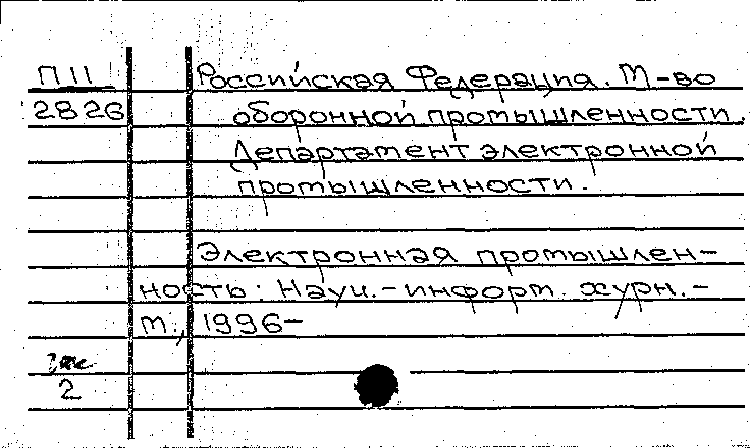 П 11
2826
Российская Федерация. М-во
оборонной промышленности.
Департамент электронной
промышленности.
Электронная промышлен-
ность: Науч.-информ. журн.-
М., 1996-
2